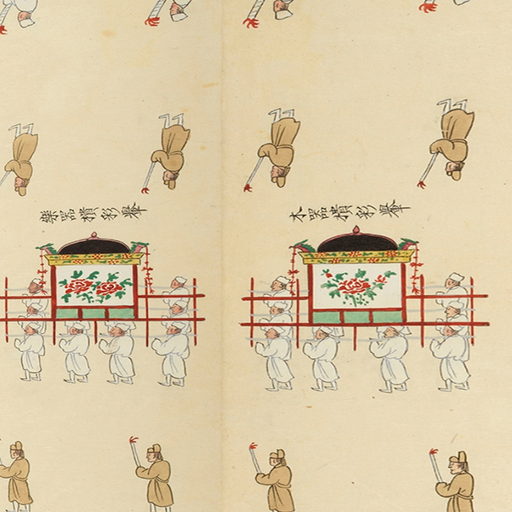 樂器樻彩轝
木器樻彩轝